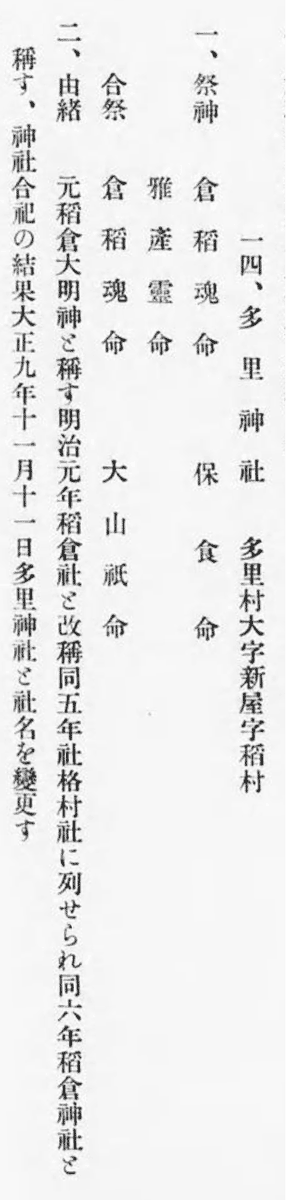 一四、多里神社　多里村大字新屋字稻村
一、祭神　倉稻魂命　保食命
雅產靈命
合祭　倉稻魂命　大山祇命
二、由緒　元稻倉大明神と稱す明治元年稻倉社と改稱同五年社格村社に列せられ同六年稻倉神社と
稱す、神社合祀の結果大正九年十一月十一日多里神社と社名を變更す